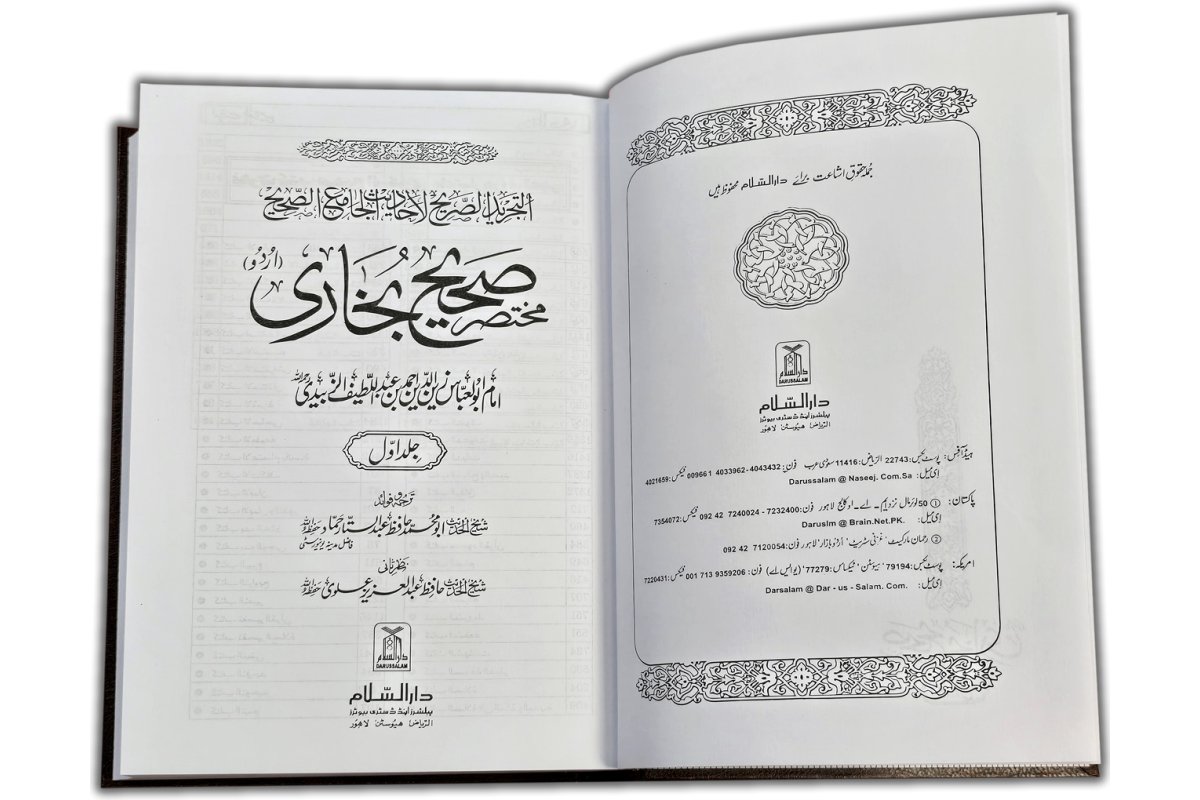 جملہ حقوق اشاعت برائے دارالسلام محفوظ ہیں
دارالسلام
DARUSSALAM
دارالسلام
پبلشرز اینڈ ڈسٹری بیوٹرز
الریاض ہیوسٹن لاہور
ہیڈ آفس: پوسٹ بکس: 22743 الریاض: 11416 سعودی عرب فون: 4043432-4033962 1 00966 فیکس: 4021659
ای میل: Darussalam @ Naseej. Com.Sa
پاکستان: ① 50 لوئر مال نزد ایم۔ اے۔ او کالج لاہور فون: 7232400 - 7240024 42 092 فیکس: 7354072
ای میل: Daruslm @ Brain.Net.PK.
② رحمان مارکیٹ، غزنی سٹریٹ، اردو بازار لاہور فون: 7120054 42 092
امریکہ: پوسٹ بکس: 79194، ہیوسٹن، ٹیکساس: 77279 (یو ایس اے) فون: 9359206 713 001 فیکس: 7220431
ای میل: Darsalam @ Dar - us - Salam. Com.
التجرید الصریح لاحادیث الجامع الصحیح
مختصر صحیح بخاری (اردو)
امام ابو العباس زین الدین احمد بن عبد اللطیف الزبیدی رحمہ اللہ
جلد اول
ترجمہ و فوائد
شیخ الحدیث ابو محمد حافظ عبد الستار حماد حفظہ اللہ
فاضل مدینہ یونیورسٹی
نظر ثانی
شیخ الحدیث حافظ عبد العزیز علوی حفظہ اللہ
دارالسلام
DARUSSALAM
دارالسلام
پبلشرز اینڈ ڈسٹری بیوٹرز
الریاض ہیوسٹن لاہور